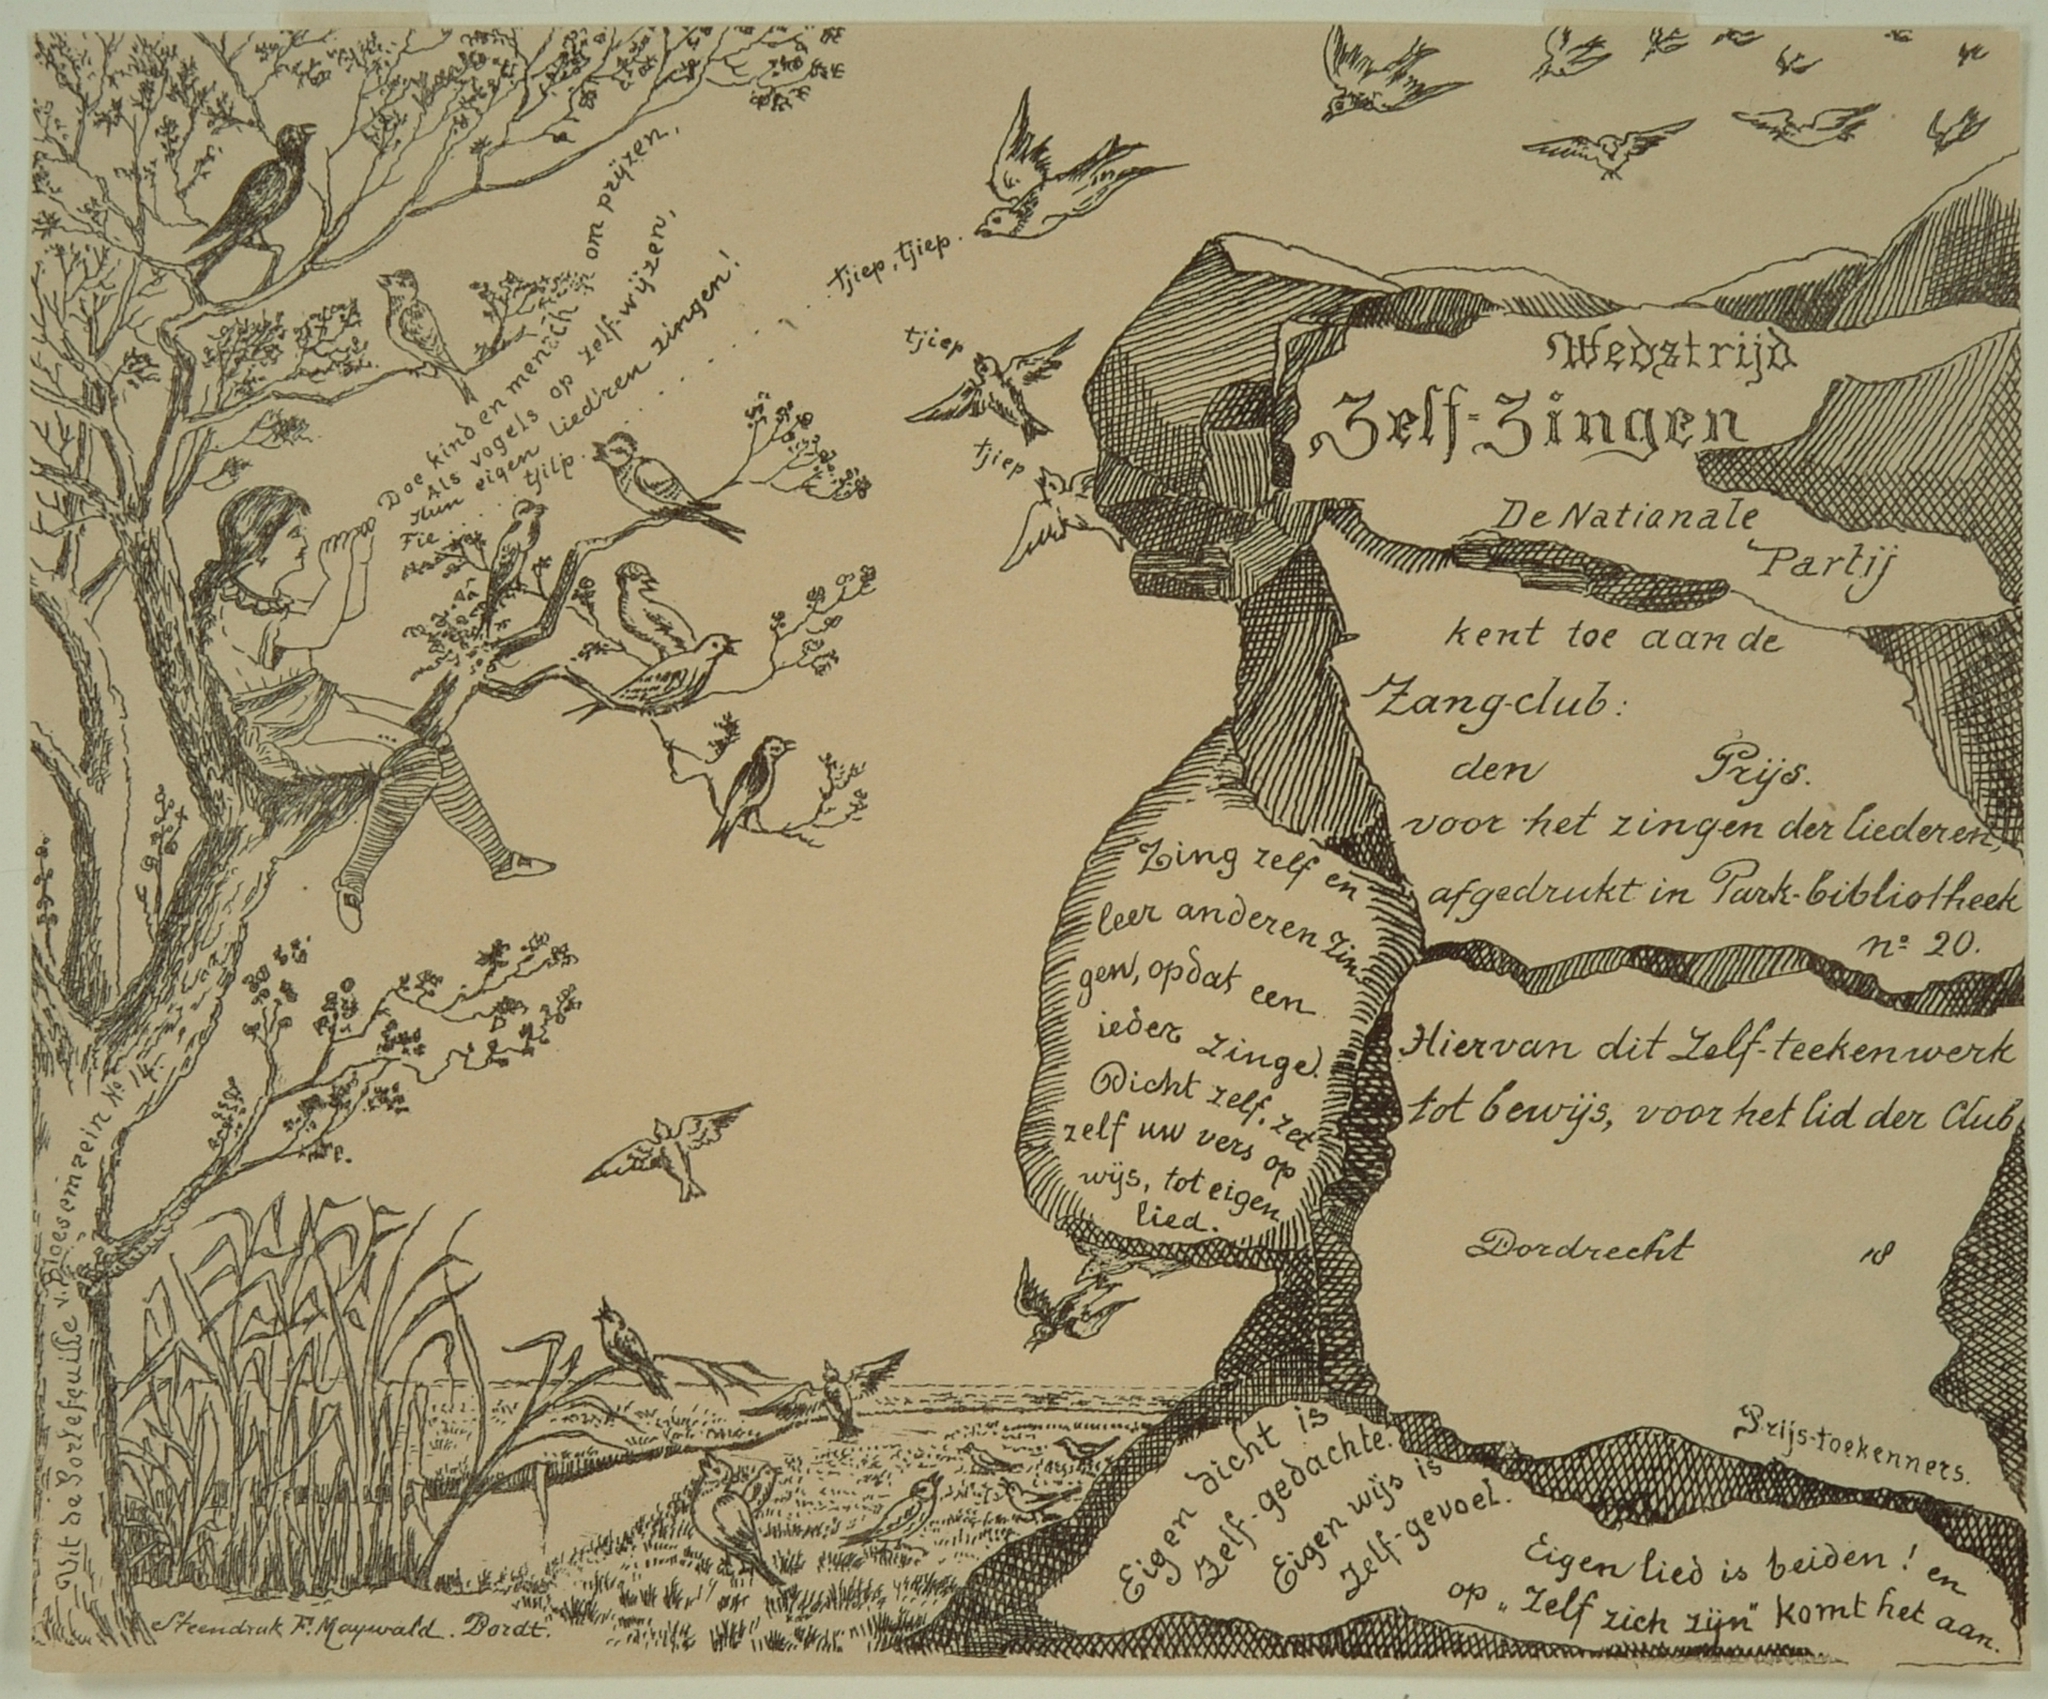 Doe kind en mensch om prijzen,
Als vogels op zelf-wijzen,
Hun eigen lied'ren zingen!
Fie.... tjilp.
tjiep, tjiep.
tjiep
tjiep
Wedstrijd
Zelf-Zingen
De Nationale
Partij
kent toe aan de
Zang-club:
den Prijs.
voor het zingen der liederen,
afgedrukt in Park-bibliotheek
no 20.
Hiervan dit Zelf-teekenwerk
tot bewijs, voor het lid der Club
Dordrecht 18
Prijs-toekenners.
Zing zelf en
leer anderen zin
gen, opdat een
ieder zinge.
Dicht zelf, zet
zelf uw vers op
wijs, tot eigen
lied.
Eigen dicht is
Zelf-gedachte.
Eigen wijs is
Zelf-gevoel.
Eigen lied is beiden! en
op „Zelf zich zijn" komt het aan.
Uit de Portefeuille v. Does No 14.
Steendruk F. Maywald. Dordt.